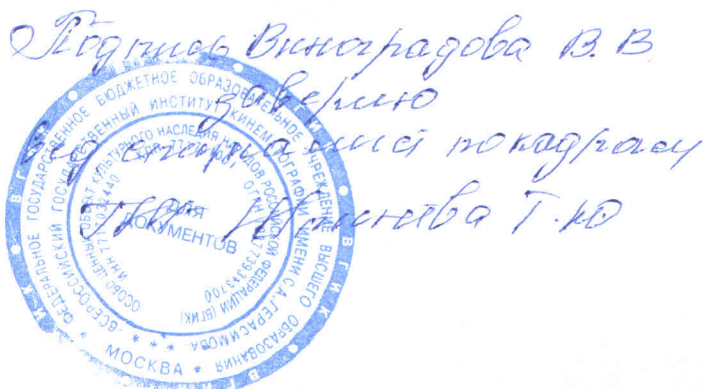 Подпись Виноградова В.В
заверяю
Вед специалист по кадрам
Т.Ю
ФЕДЕРАЛЬНОЕ ГОСУДАРСТВЕННОЕ БЮДЖЕТНОЕ ОБРАЗОВАТЕЛЬНОЕ УЧРЕЖДЕНИЕ ВЫСШЕГО ОБРАЗОВАНИЯ
ВСЕРОССИЙСКИЙ ГОСУДАРСТВЕННЫЙ ИНСТИТУТ КИНЕМАТОГРАФИИ ИМЕНИ С.А. ГЕРАСИМОВА
ОСОБО ЦЕННЫЙ ОБЪЕКТ КУЛЬТУРНОГО НАСЛЕДИЯ НАРОДОВ РОССИЙСКОЙ ФЕДЕРАЦИИ (ВГИК)
ДЛЯ
ДОКУМЕНТОВ
МОСКВА